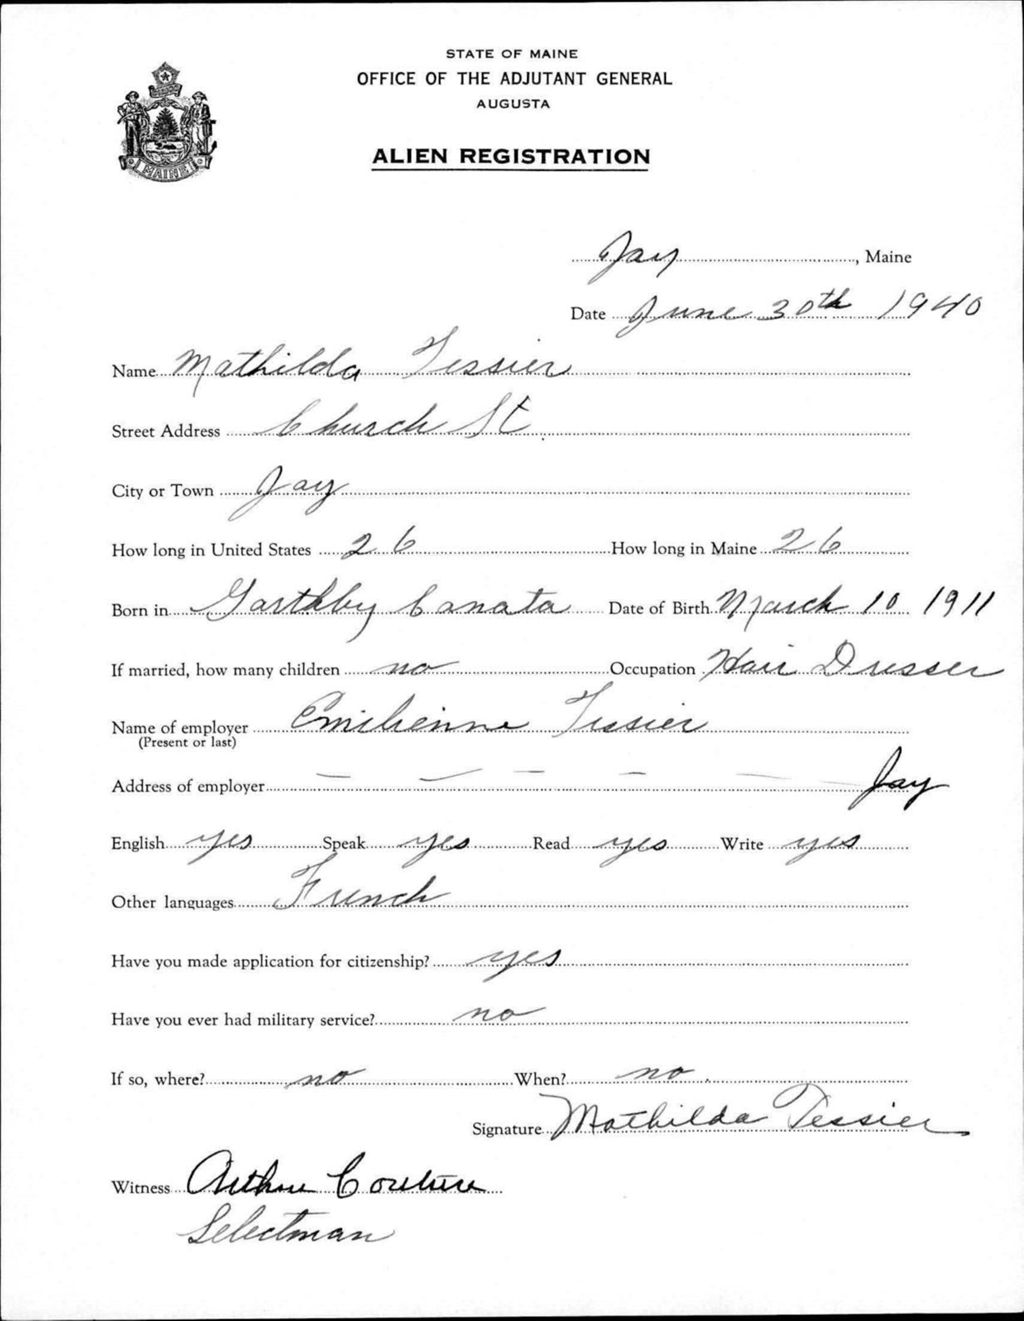 STATE OF MAINE
OFFICE OF THE ADJUTANT GENERAL
AUGUSTA
ALIEN REGISTRATION
MAINE
Jay, Maine
Date June 30th 1940
Name Mathilda Tessier
Street Address Church St
City or Town Jay
How long in United States 26 How long in Maine 26
Born in Garthby Canata Date of Birth March 10 1911
If married, how many children no Occupation Hair Dresser
Name of employer Emilienne Tessier
(Present or last)
Address of employer — — — — — Jay
English yes Speak yes Read yes Write yes
Other languages French
Have you made application for citizenship? yes
Have you ever had military service? no
If so, where? no When? no
Signature Mathilda Tessier
Witness Arthur Couture
Selectman